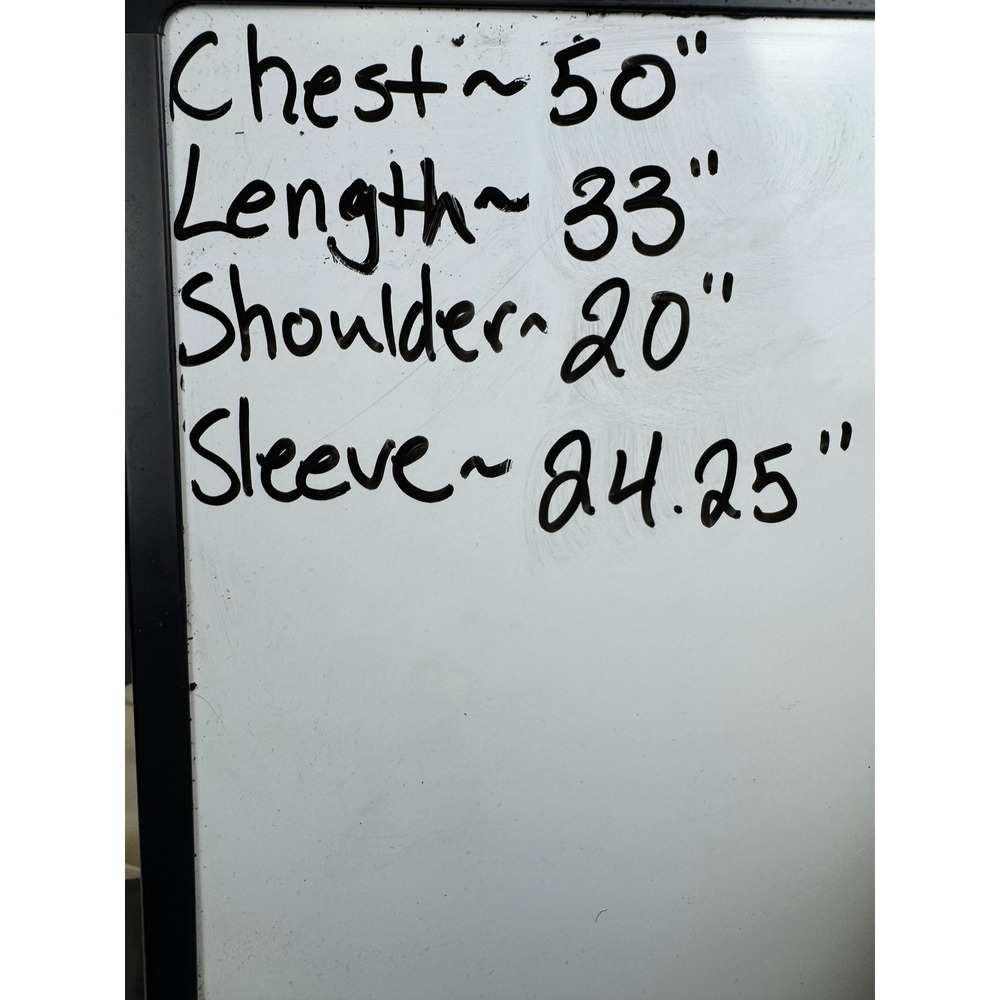 Chest ~ 50"
Length ~ 33"
Shoulder ~ 20"
Sleeve ~ 24.25"